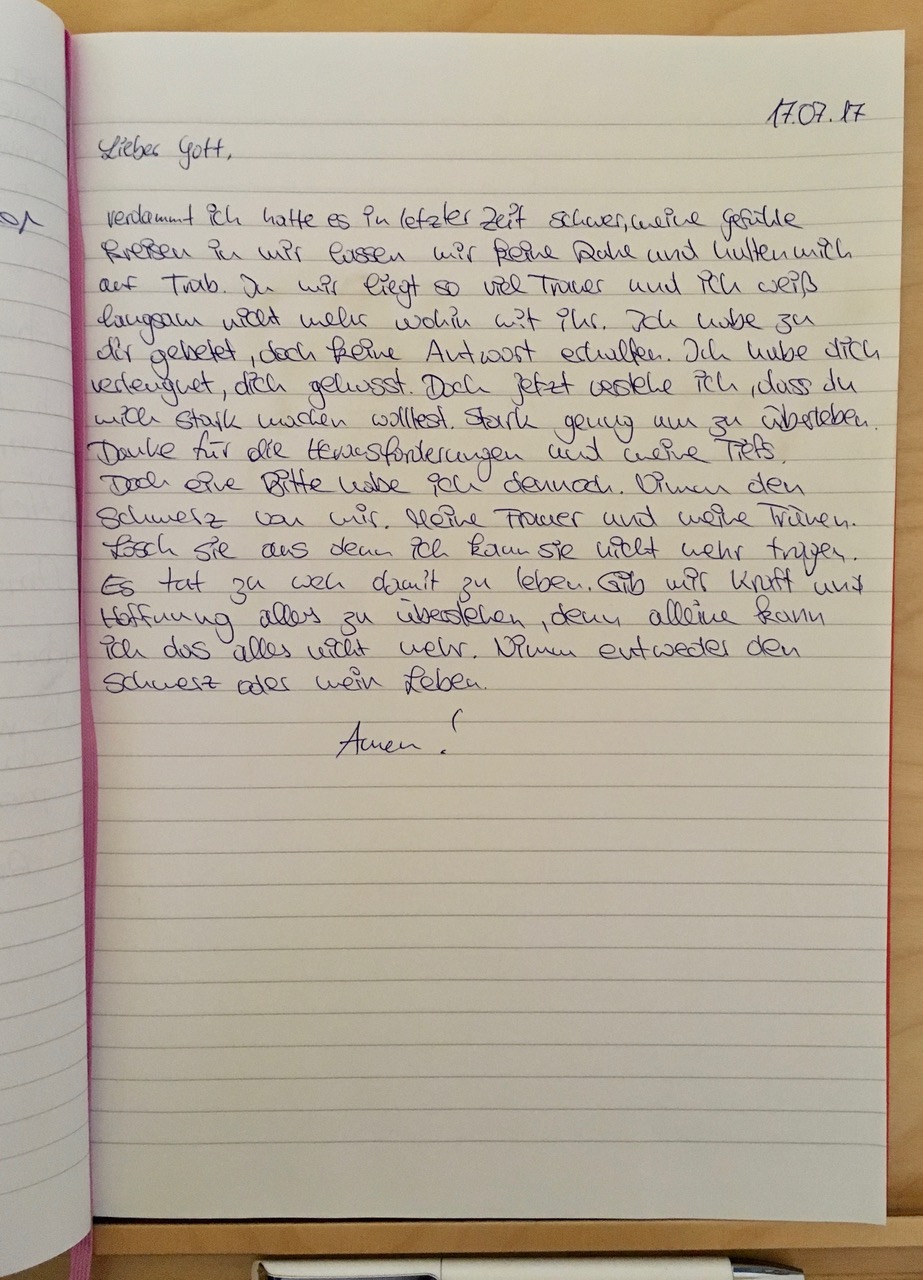 17.07.17
Lieber Gott,
verdammt ich hatte es in letzter Zeit schwer, meine gefühle
kreisen in mir lassen mir keine Ruhe und halten mich
auf Trab. In mir liegt so viel Trauer und ich weiß
langsam nicht mehr wohin mit ihr. Ich habe zu
dir gebetet, doch keine Antwort erhalten. Ich habe dich
verleugnet, dich gehasst. Doch jetzt verstehe ich, dass du
mich stark machen wolltest. Stark genug um zu überleben.
Danke für die Herausforderungen und meine Tiefs.
Doch eine Bitte habe ich dennoch. Nimm den
Schmerz von mir. Meine Trauer und meine Tränen.
Lösch sie aus denn ich kann sie nicht mehr tragen.
Es tat zu weh damit zu leben. Gib mir Kraft und
Hoffnung alles zu überstehen, denn alleine kann
ich das alles nicht mehr. Nimm entweder den
Schmerz oder mein Leben.
Amen!